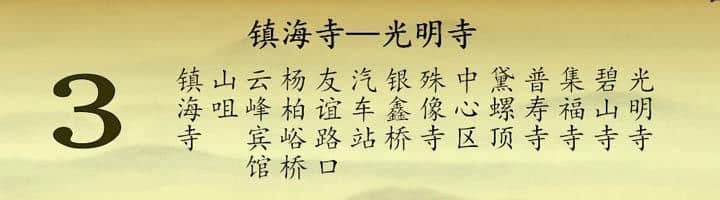 镇海寺—光明寺
3
镇海寺
山咀
云峰宾馆
杨柏峪桥
友谊路口
汽车站
银鑫桥
殊像寺
中心区
黛螺顶
普寿寺
集福寺
碧山寺
光明寺